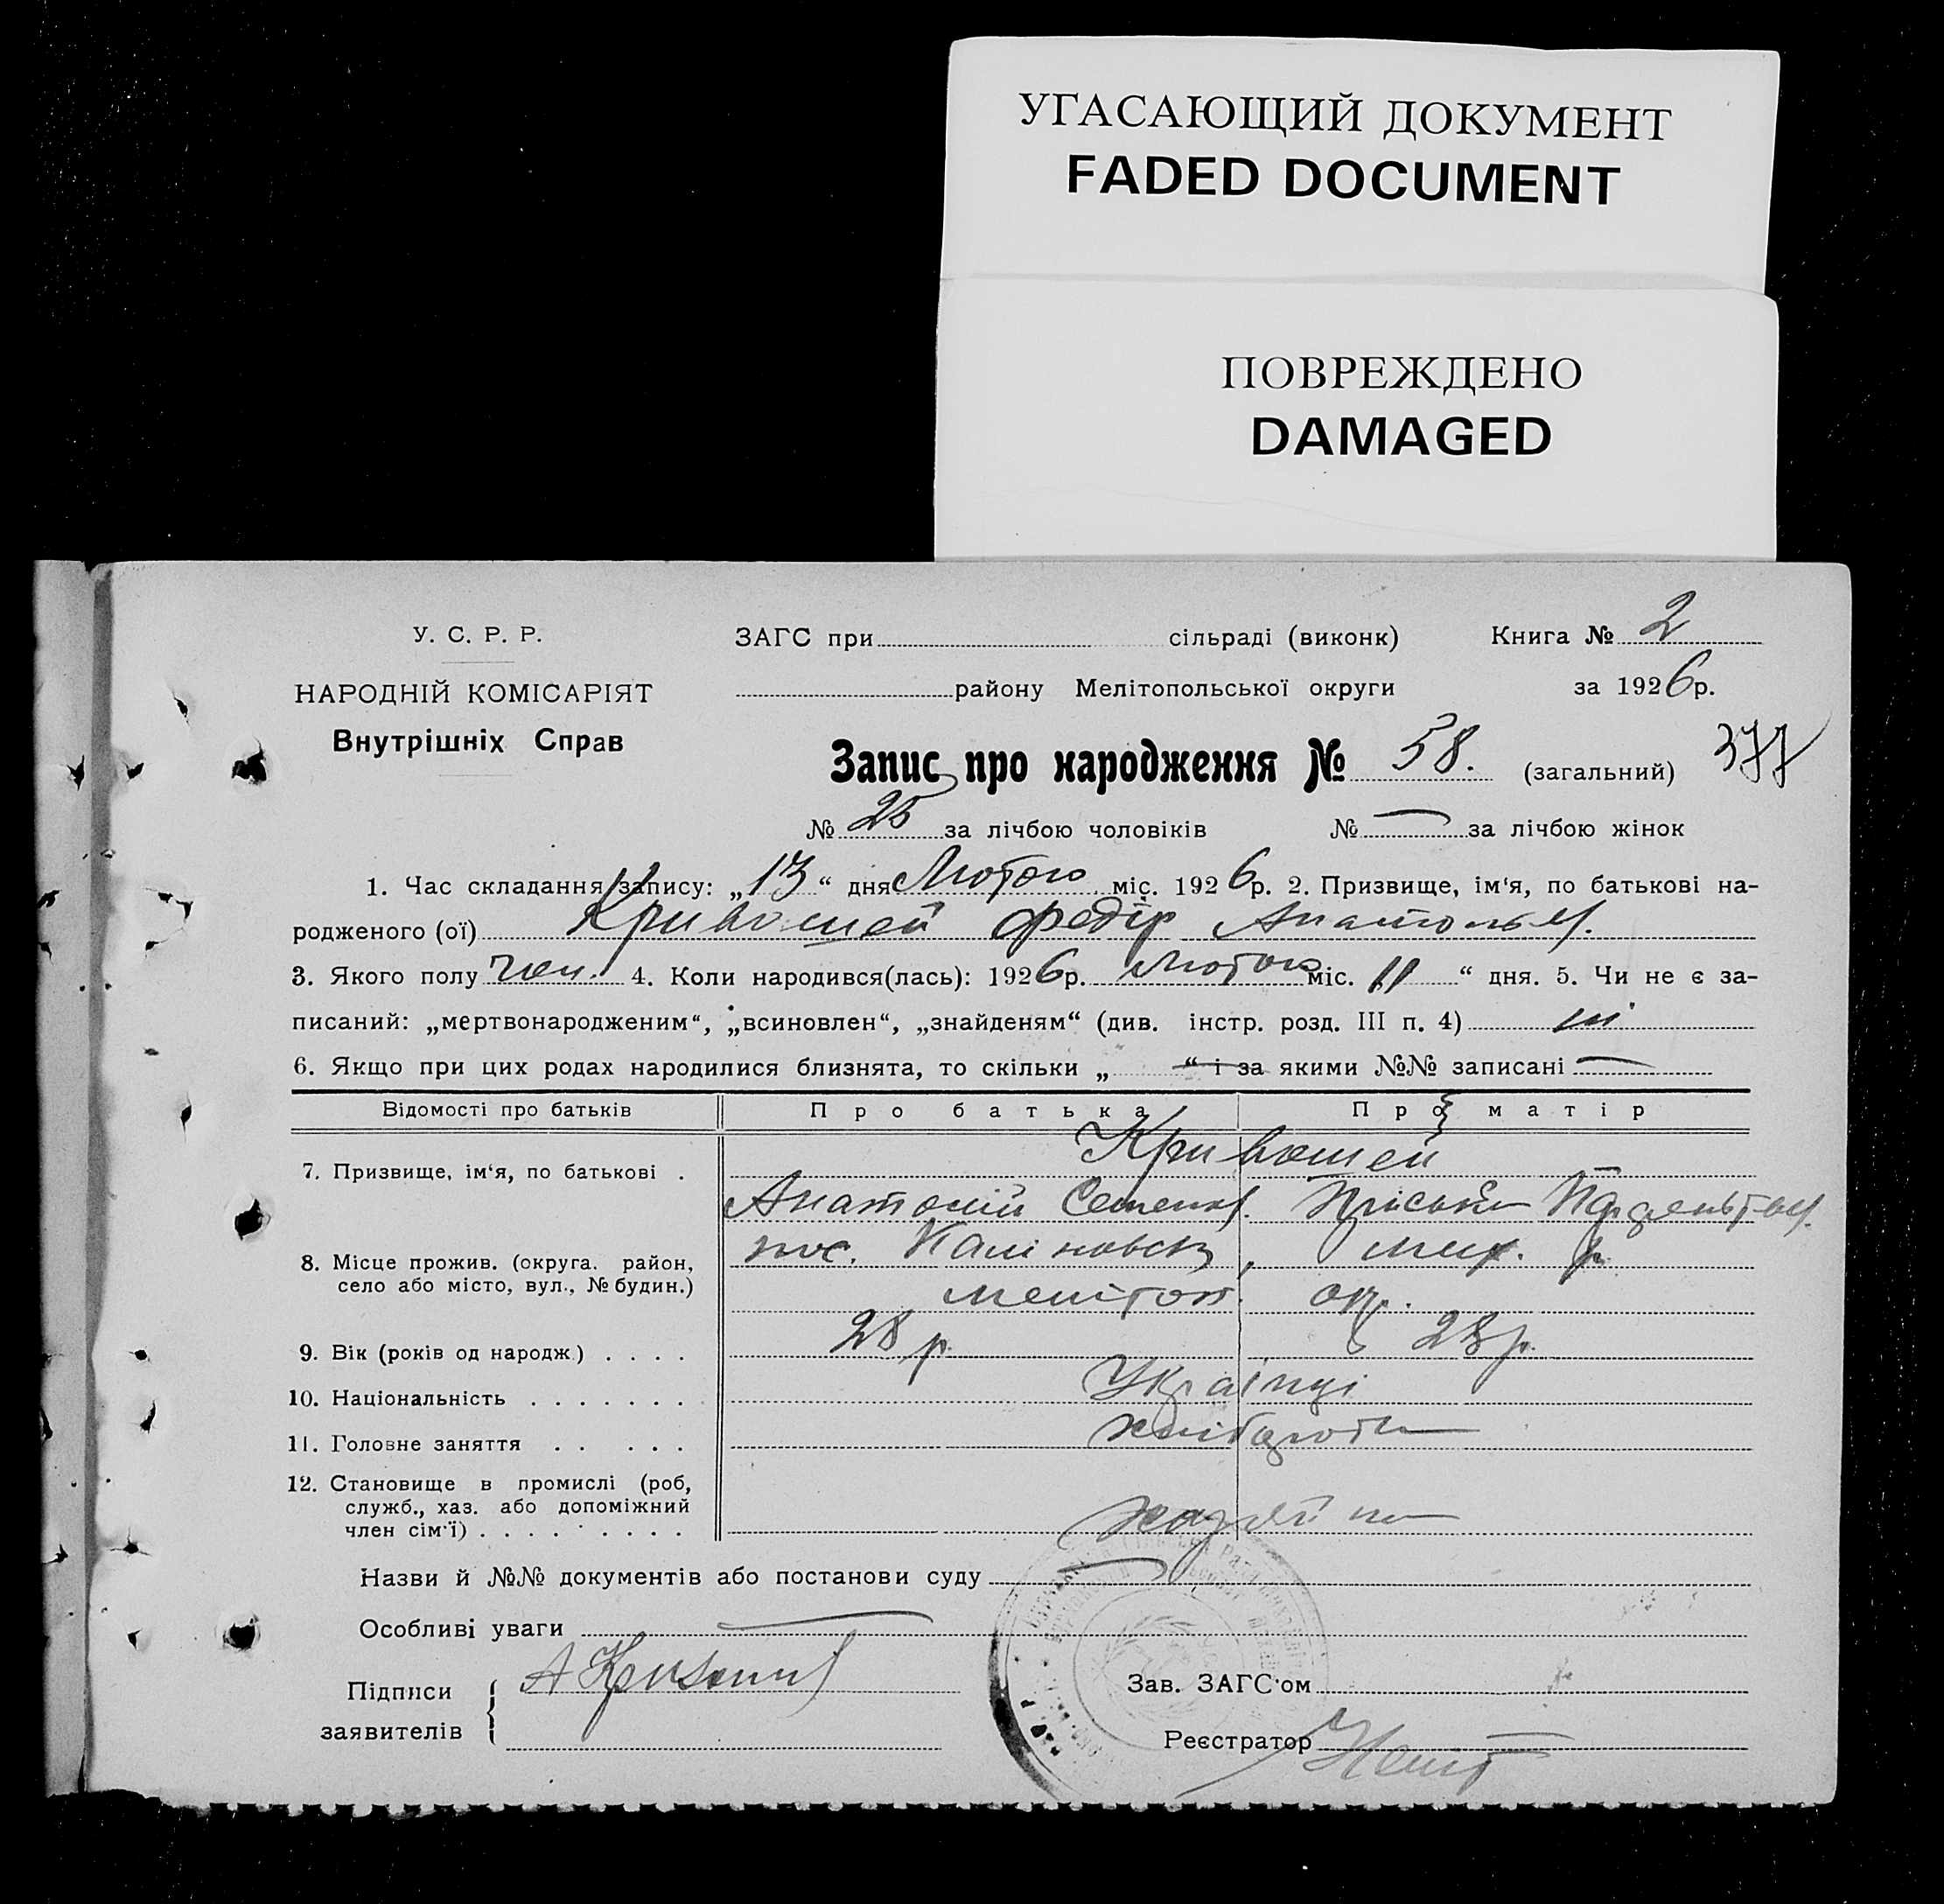 УГАСАЮЩИЙ ДОКУМЕНТ
FADED DOCUMENT
ПОВРЕЖДЕНО
DAMAGED
У. С. Р. Р.
НАРОДНІЙ КОМІСАРІЯТ
Внутрішніх Справ
ЗАГС при сільраді (виконк) Книга № 2
району Мелітопольської округи за 1926р.
Запис про народження № 58. (загальний) 377
№ 25 за лічбою чоловіків № — за лічбою жінок
1. Час складання запису: „13“ дня Лютого міс. 1926р. 2. Призвище, ім‘я, по батькові на-
родженого (ої) Кривошей Федір Анатольев.
3. Якого полу чол. 4. Коли народився(лась): 1926р. Лютого міс. 11 “ дня. 5. Чи не є за-
писаний: „мертвонародженим“, „всиновлен“, „знайденям“ (див. інстр. розд. III п. 4) ні
6. Якщо при цих родах народилися близнята, то скільки „ “ і за якими №№ записані —
Відомості про батьків Про батька Про матір
7. Призвище, ім‘я, по батькові . Кривошей
Анатолій Семенов. Пріська
8. Місце прожив. (округа. район, село або місто, вул., № будин.) пос. Каліновськ, р.
мелітоп. окр.
9. Вік (років од народж.) . . . . 28 р. 28 р.
10. Національність . . . . . . . . Українці
11. Головне заняття . . . . . хліборобы
12. Становище в промислі (роб,
служб., хаз. або допоміжний
член сім‘ї) . . . . . . . . . хазяїни
Назви й №№ документів або постанови суду —
Особливі уваги —
Підписи
заявителів А Кривошей
Зав. ЗАГС‘ом
Реєстратор